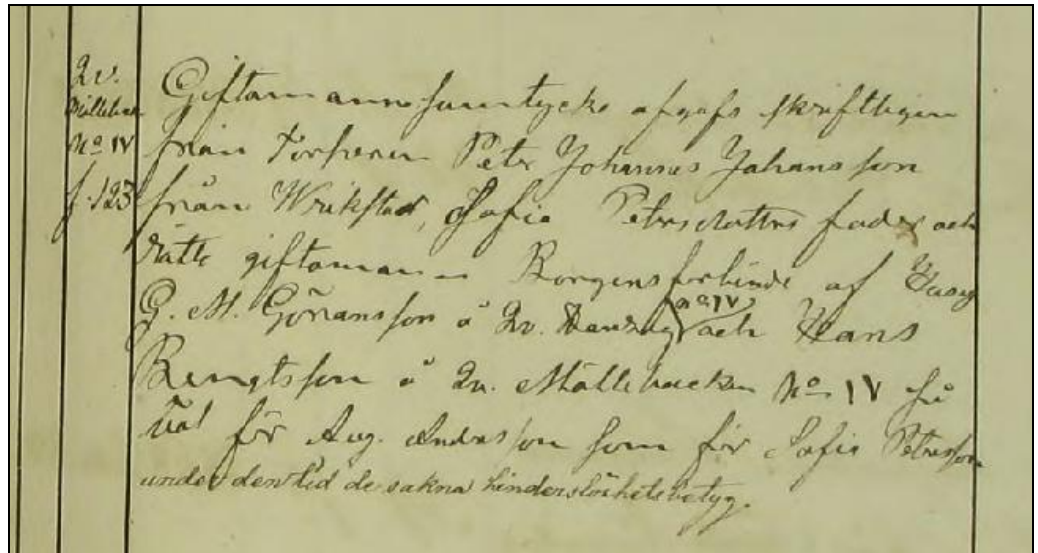 Qv.
Möllebacken
No IV
f. 123
Giftomannasamtycke afgafs skriftligen
från Torparen Peter Johannes Johansson
från Wrikstad, Sofia Petersdotters fader och
rätte giftoman Borgensförbinde af
G. M. Göransson å Qv. No IV och Hans
Bengtsson å Qv. Möllebacken No IV så
väl för Aug. Andersson som för Sofia Petersson
under den tid de sakna hinderslöshetsbetyg.